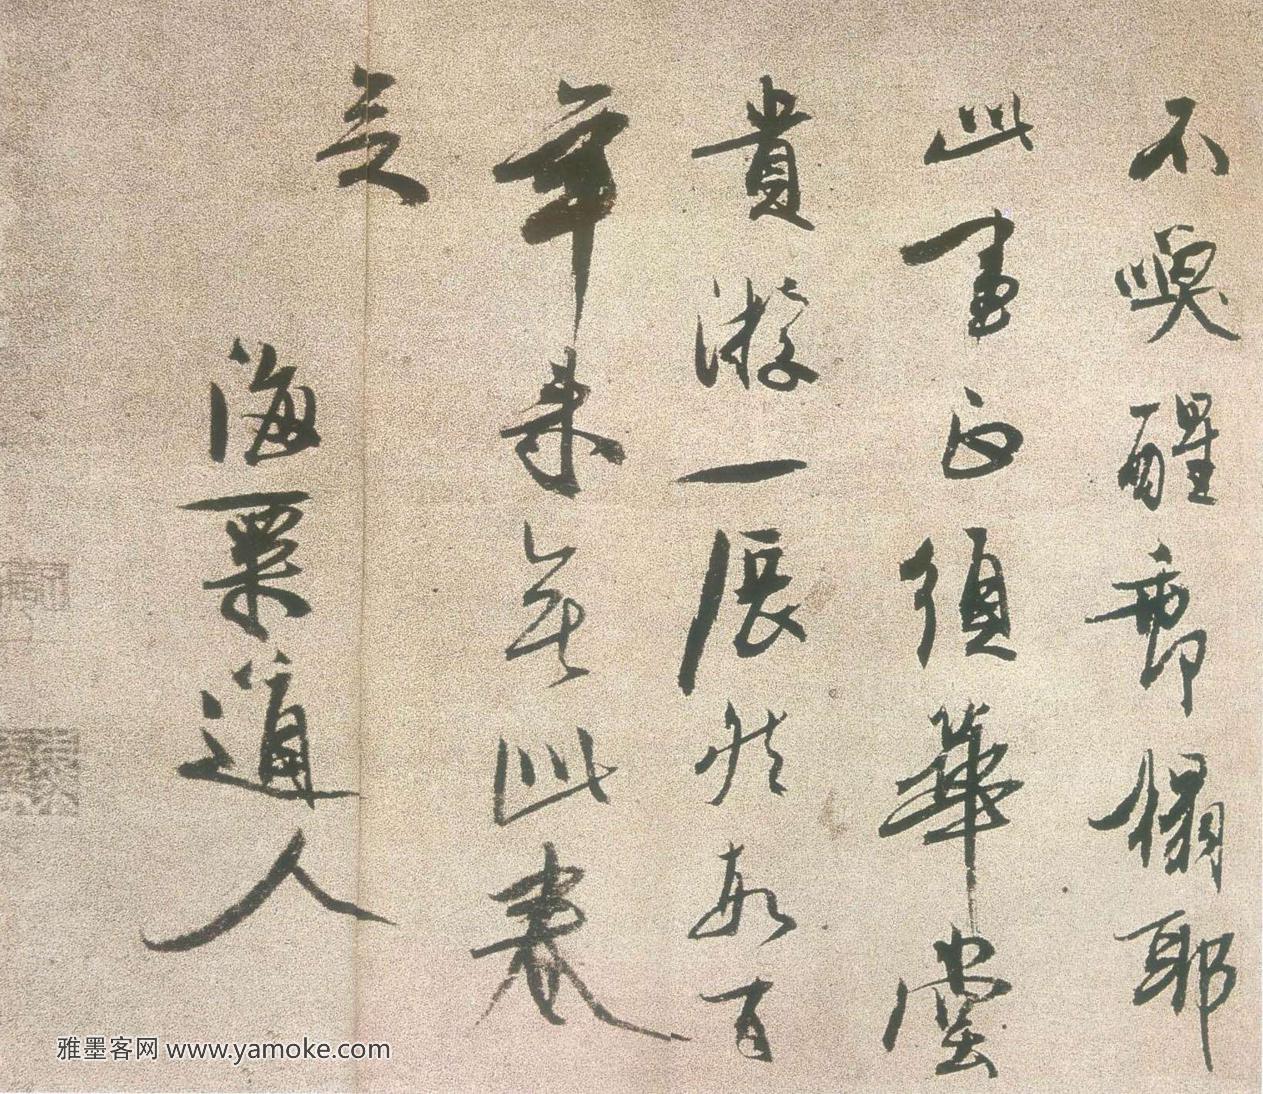 不喚醒郵榻耶
此事正須華堂
貴游一展然數百
年來無此卷
矣
海粟道人
雅墨客网 www.yamoke.com